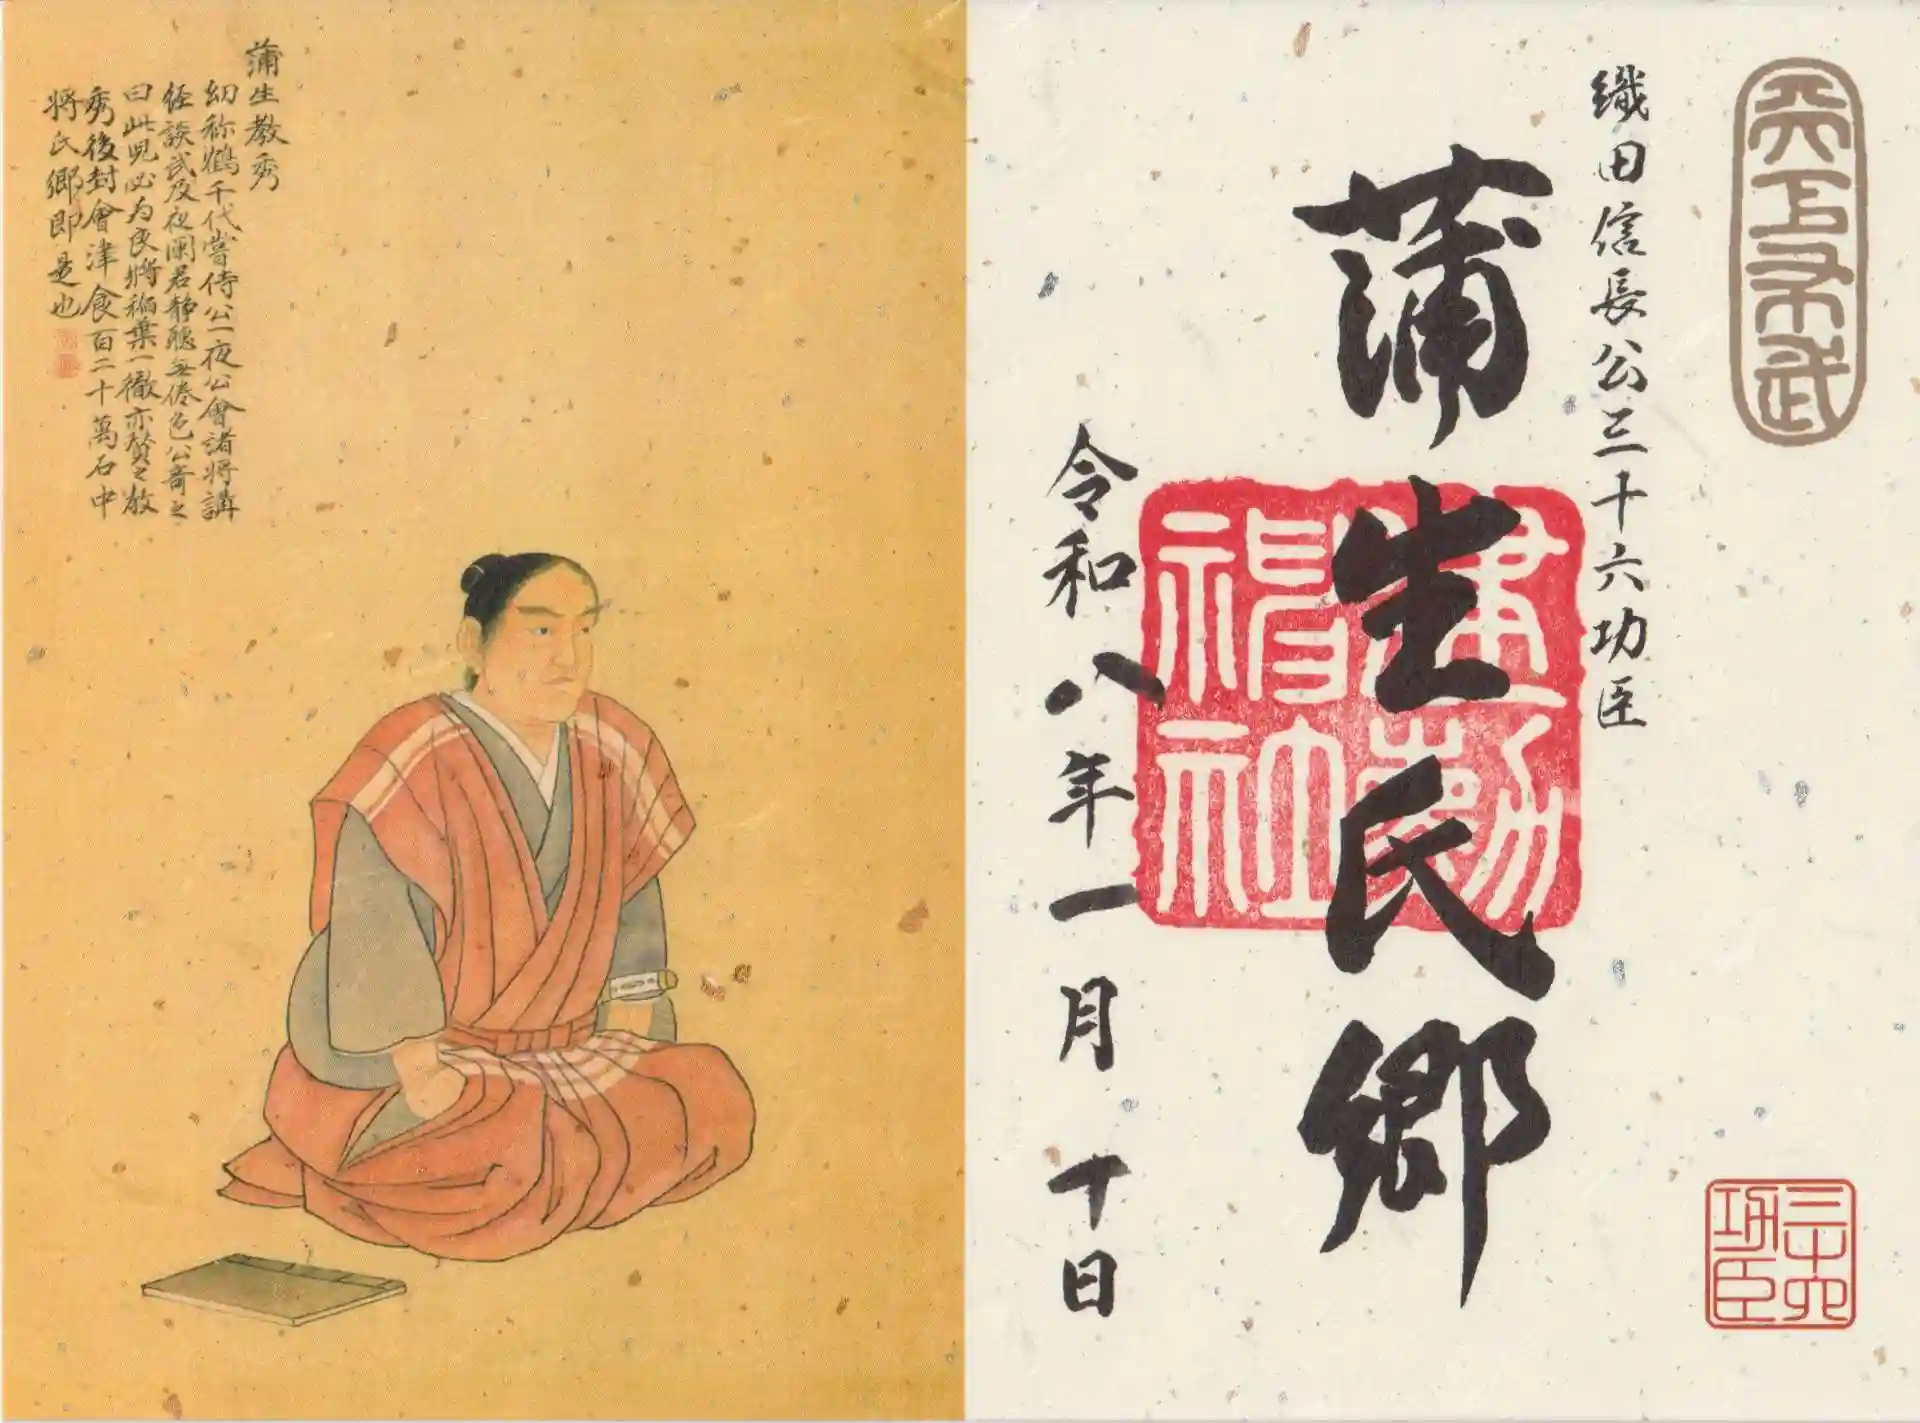 天下布武
織田信長公三十六功臣
蒲生氏郷
建勲神社
令和八年一月十日
三十六功臣
蒲生教秀
幼称鶴千代嘗侍公一夜公會諸将講
経談武及夜闌君静聴無倦色公奇之
曰此児必为良将稲葉一徹亦賛之教
秀後封會津食百二十萬石中
将氏郷即是也